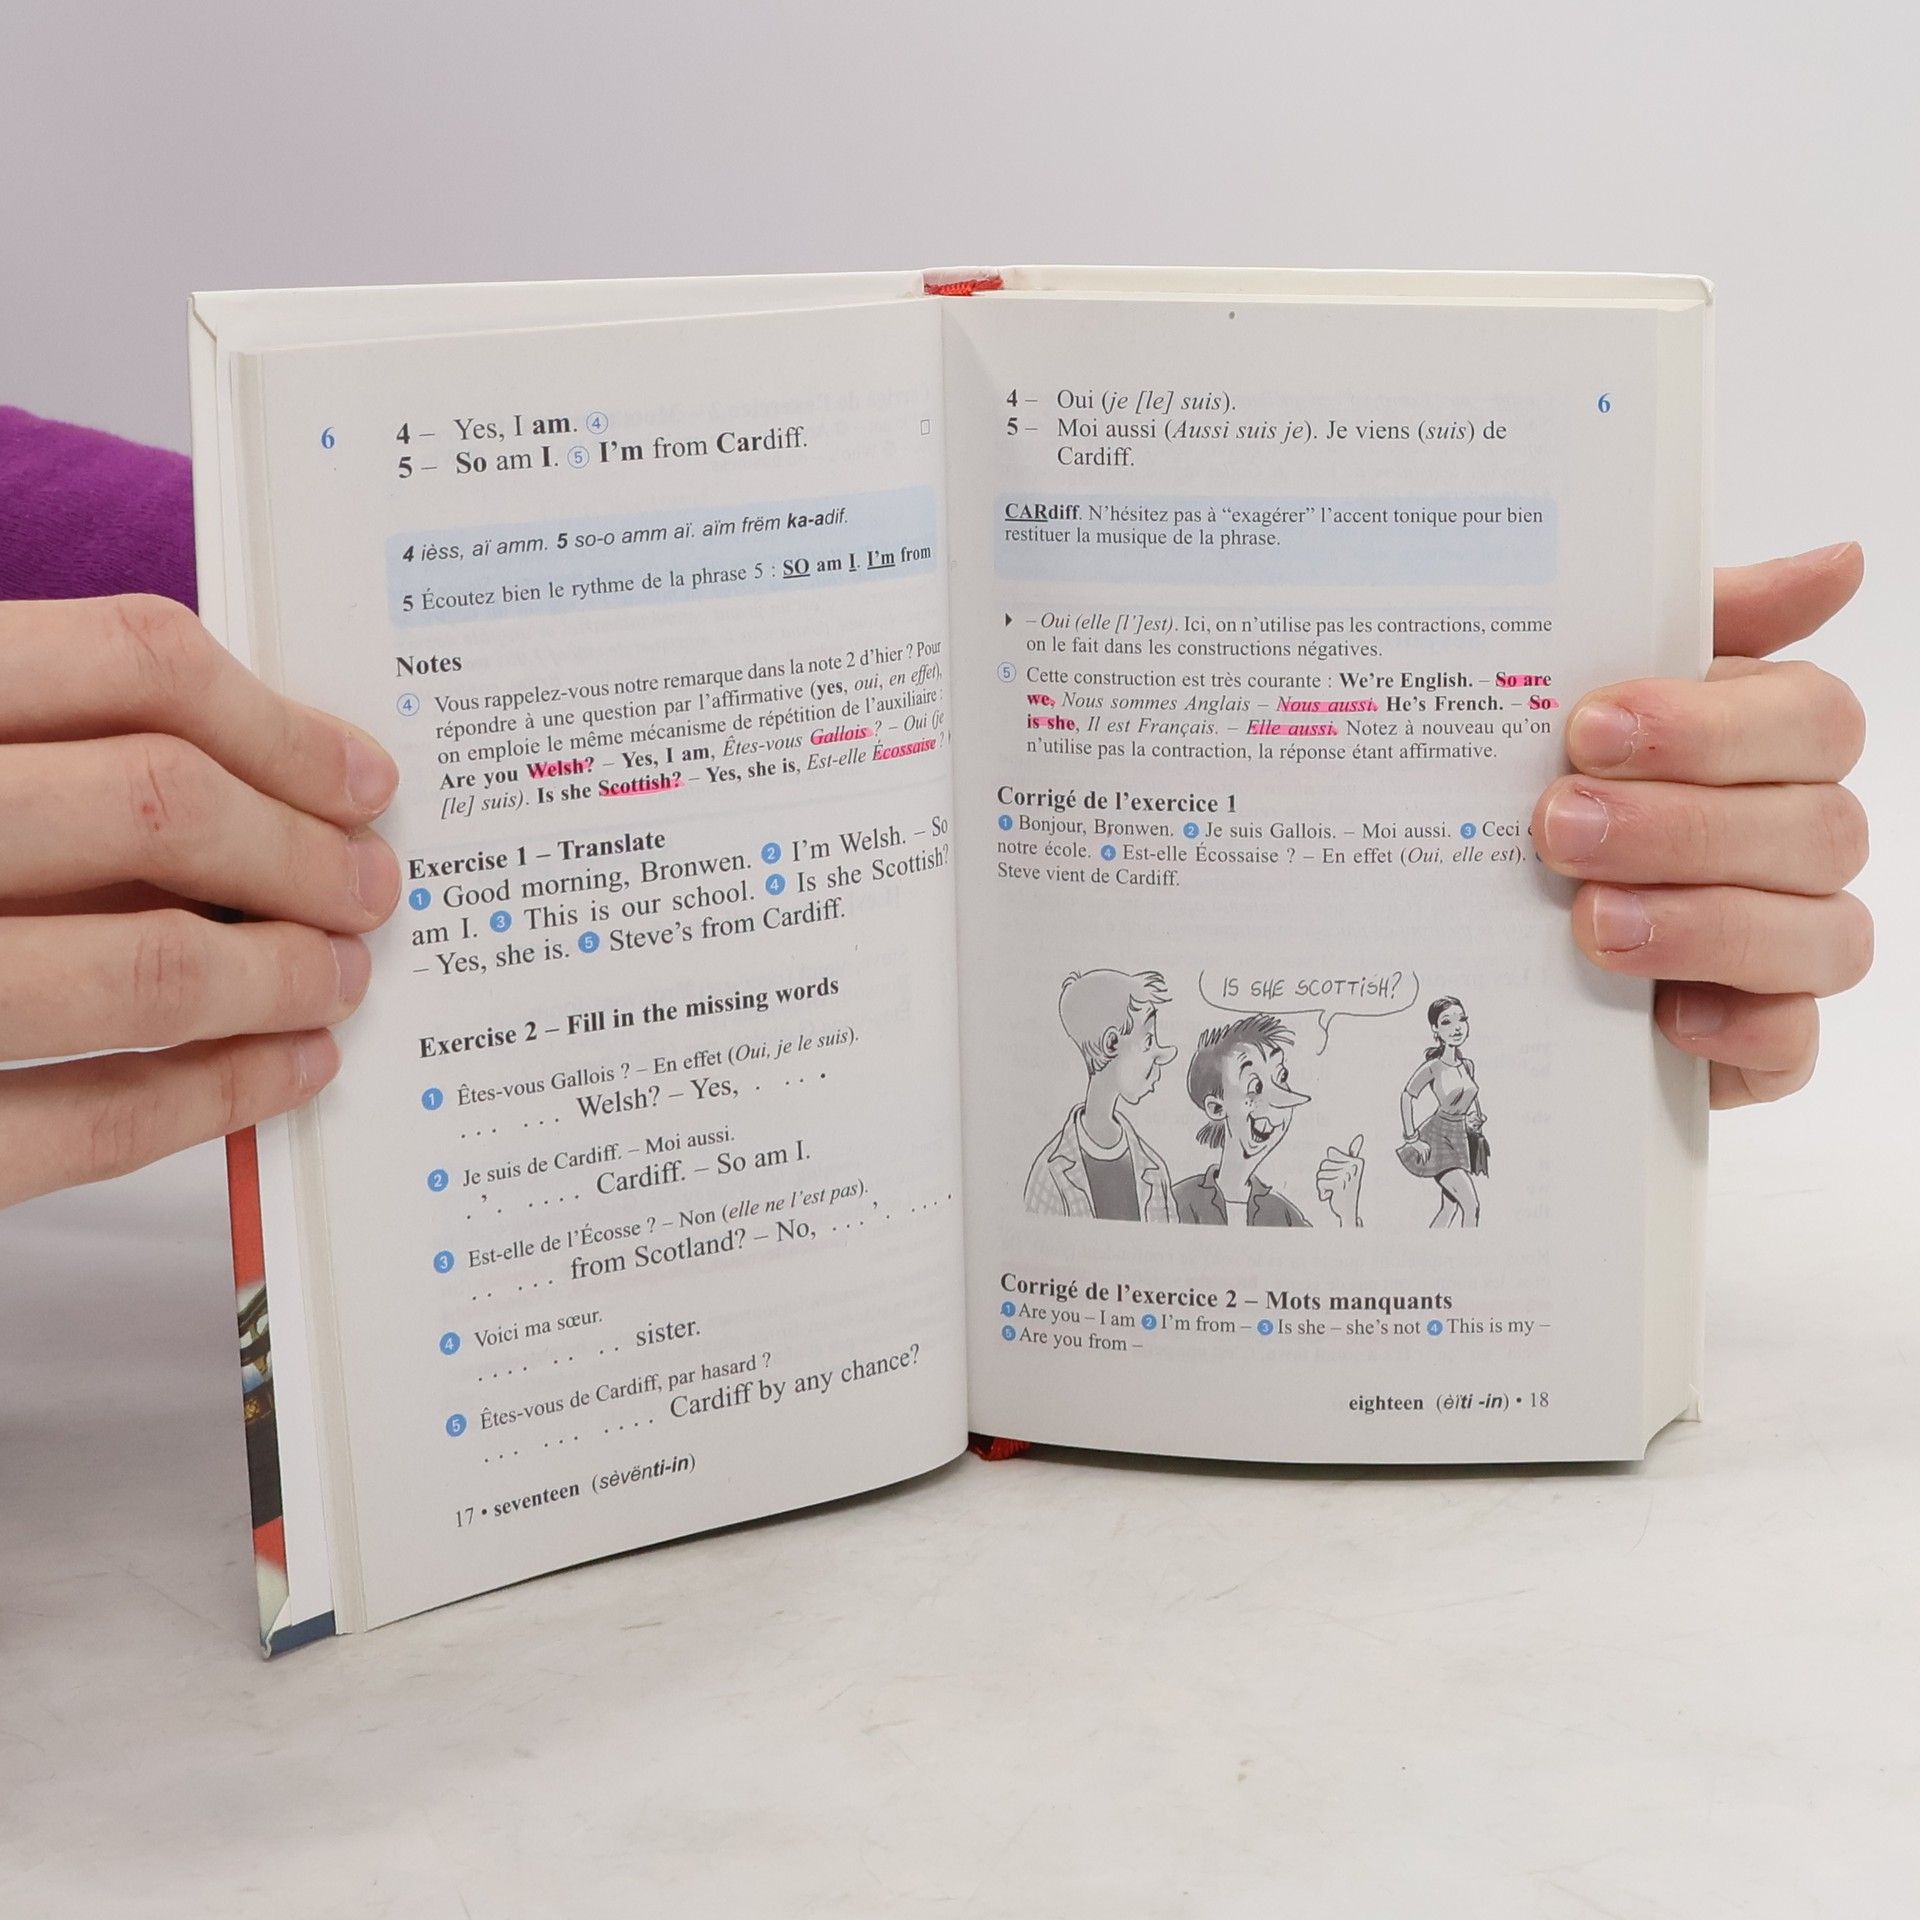 6
4 – Yes, I am. ④
5 – So am I. ⑤ I'm from Cardiff.
4 ièss, aï amm. 5 so-o amm aï. aïm frëm ka-adif.
5 Écoutez bien le rythme de la phrase 5 : SO am I. I'm from
Notes
④ Vous rappelez-vous notre remarque dans la note 2 d'hier ? Pour
répondre à une question par l'affirmative (yes, oui, en effet),
on emploie le même mécanisme de répétition de l'auxiliaire :
Are you Welsh? – Yes, I am, Êtes-vous Gallois ? – Oui (je
[le] suis). Is she Scottish? – Yes, she is, Est-elle Écossaise ?
Exercise 1 – Translate
❶ Good morning, Bronwen. ❷ I'm Welsh. – So
am I. ❸ This is our school. ❹ Is she Scottish?
– Yes, she is. ❺ Steve's from Cardiff.
Exercise 2 – Fill in the missing words
❶ Êtes-vous Gallois ? – En effet (Oui, je le suis).
. . . . . . Welsh? – Yes, . . . .
❷ Je suis de Cardiff. – Moi aussi.
. ' . . . . . Cardiff. – So am I.
❸ Est-elle de l'Écosse ? – Non (elle ne l'est pas).
. . . . . from Scotland? – No, . . . ' . . . . .
❹ Voici ma sœur.
. . . . . . . . sister.
❺ Êtes-vous de Cardiff, par hasard ?
. . . . . . . . . . Cardiff by any chance?
17 • seventeen (sèvënti-in)
6
4 – Oui (je [le] suis).
5 – Moi aussi (Aussi suis je). Je viens (suis) de
Cardiff.
CARdiff. N'hésitez pas à “exagérer” l'accent tonique pour bien
restituer la musique de la phrase.
– Oui (elle [l']est). Ici, on n'utilise pas les contractions, comme
on le fait dans les constructions négatives.
⑤ Cette construction est très courante : We're English. – So are
we, Nous sommes Anglais – Nous aussi. He's French. – So
is she, Il est Français. – Elle aussi. Notez à nouveau qu'on
n'utilise pas la contraction, la réponse étant affirmative.
Corrigé de l'exercice 1
❶ Bonjour, Bronwen. ❷ Je suis Gallois. – Moi aussi. ❸ Ceci
notre école. ❹ Est-elle Écossaise ? – En effet (Oui, elle est).
Steve vient de Cardiff.
IS SHE SCOTTISH?
Corrigé de l'exercice 2 – Mots manquants
❶ Are you – I am ❷ I'm from – ❸ Is she – she's not ❹ This is my –
❺ Are you from –
eighteen (èïti -in) • 18